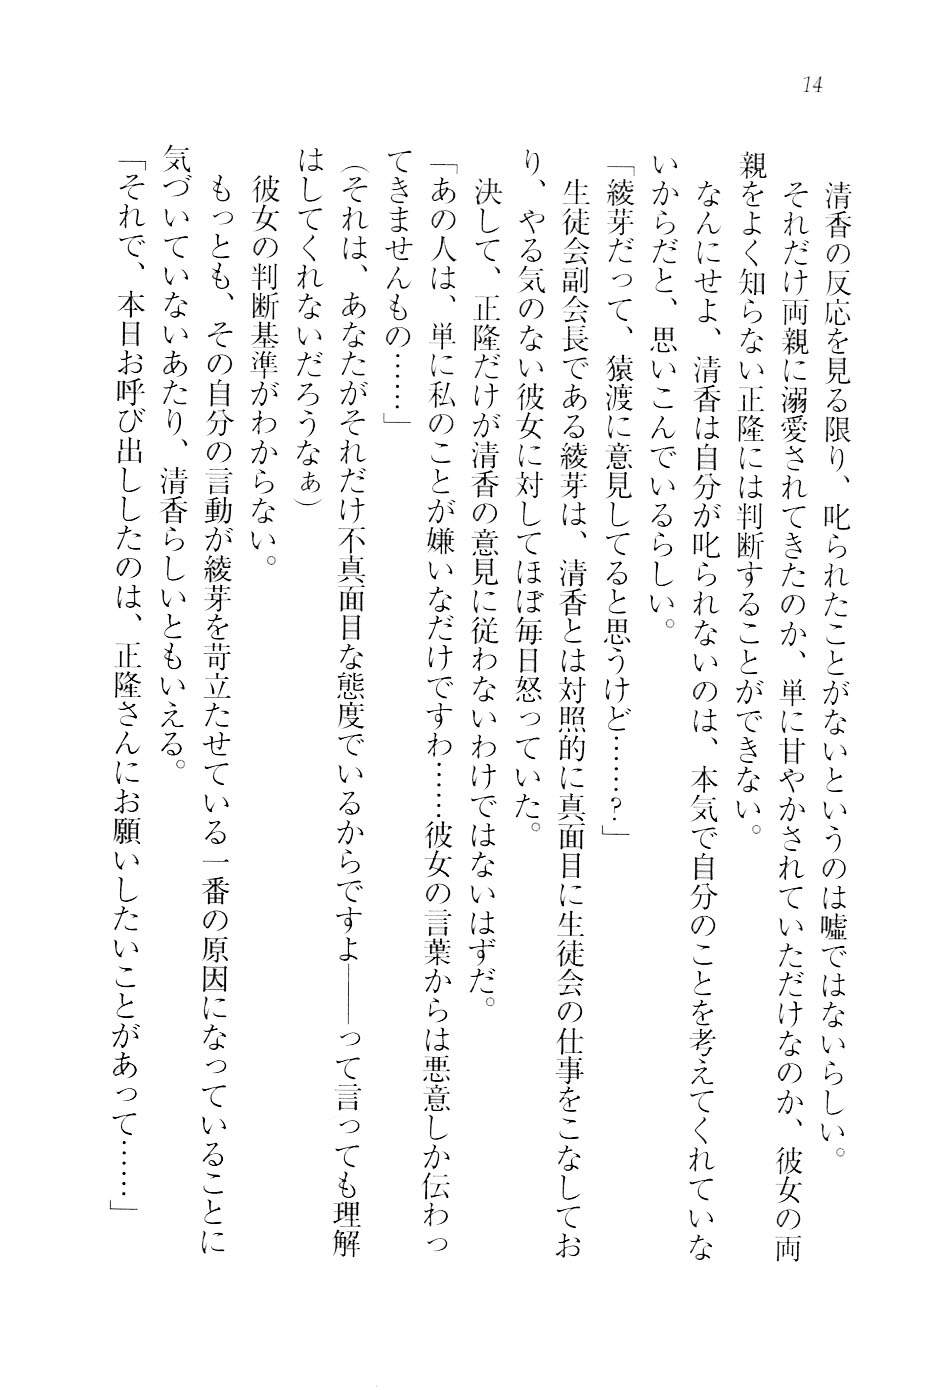 14
清香の反応を見る限り、叱られたことがないというのは嘘ではないらしい。
それだけ両親に溺愛されてきたのか、単に甘やかされていただけなのか、彼女の両
親をよく知らない正隆には判断することができない。
なんにせよ、清香は自分が叱られないのは、本気で自分のことを考えてくれていな
いからだと、思いこんでいるらしい。
「綾芽だって、猿渡に意見してると思うけど……？」
生徒会副会長である綾芽は、清香とは対照的に真面目に生徒会の仕事をこなしてお
り、やる気のない彼女に対してほぼ毎日怒っていた。
決して、正隆だけが清香の意見に従わないわけではないはずだ。
「あの人は、単に私のことが嫌いなだけですわ……彼女の言葉からは悪意しか伝わっ
てきませんもの……」
（それは、あなたがそれだけ不真面目な態度でいるからですよ――って言っても理解
はしてくれないだろうなぁ）
彼女の判断基準がわからない。
もっとも、その自分の言動が綾芽を苛立たせている一番の原因になっていることに
気づいていないあたり、清香らしいともいえる。
「それで、本日お呼び出ししたのは、正隆さんにお願いしたいことがあって……」